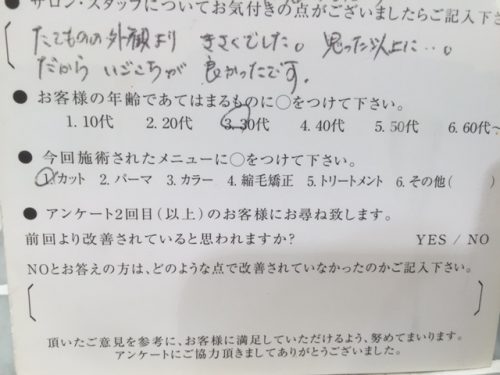 ● サロン・スタッフについてお気付きの点がございましたらご記入下さ
たてものの外観より きさくでした。思った以上に…。
だから いごこちが 良かったです。
● お客様の年齢であてはまるものに○をつけて下さい。
1. 10代 2. 20代 3. 30代 4. 40代 5. 50代 6. 60代~
● 今回施術されたメニューに○をつけて下さい。
1. カット 2. パーマ 3. カラー 4. 縮毛矯正 5. トリートメント 6. その他( )
● アンケート2回目(以上)のお客様にお尋ね致します。
前回より改善されていると思われますか? YES / NO
NOとお答えの方は、どのような点で改善されていなかったのかご記入下さい。
頂いたご意見を参考に、お客様に満足していただけるよう、努めてまいります。
アンケートにご協力頂きましてありがとうございました。